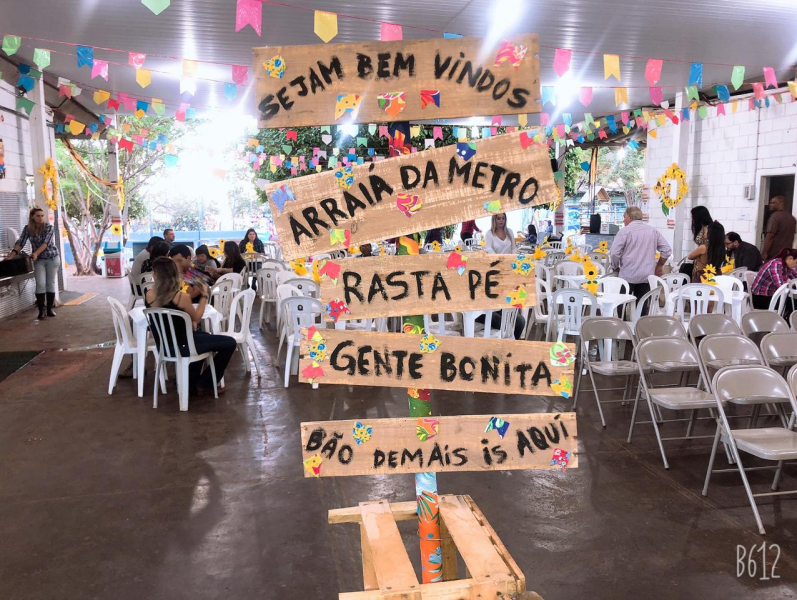 SEJAM BEM VINDOS
ARRAIÁ DA METRO
RASTA PÉ
GENTE BONITA
BÃO DEMAIS is AQUÍ
B612